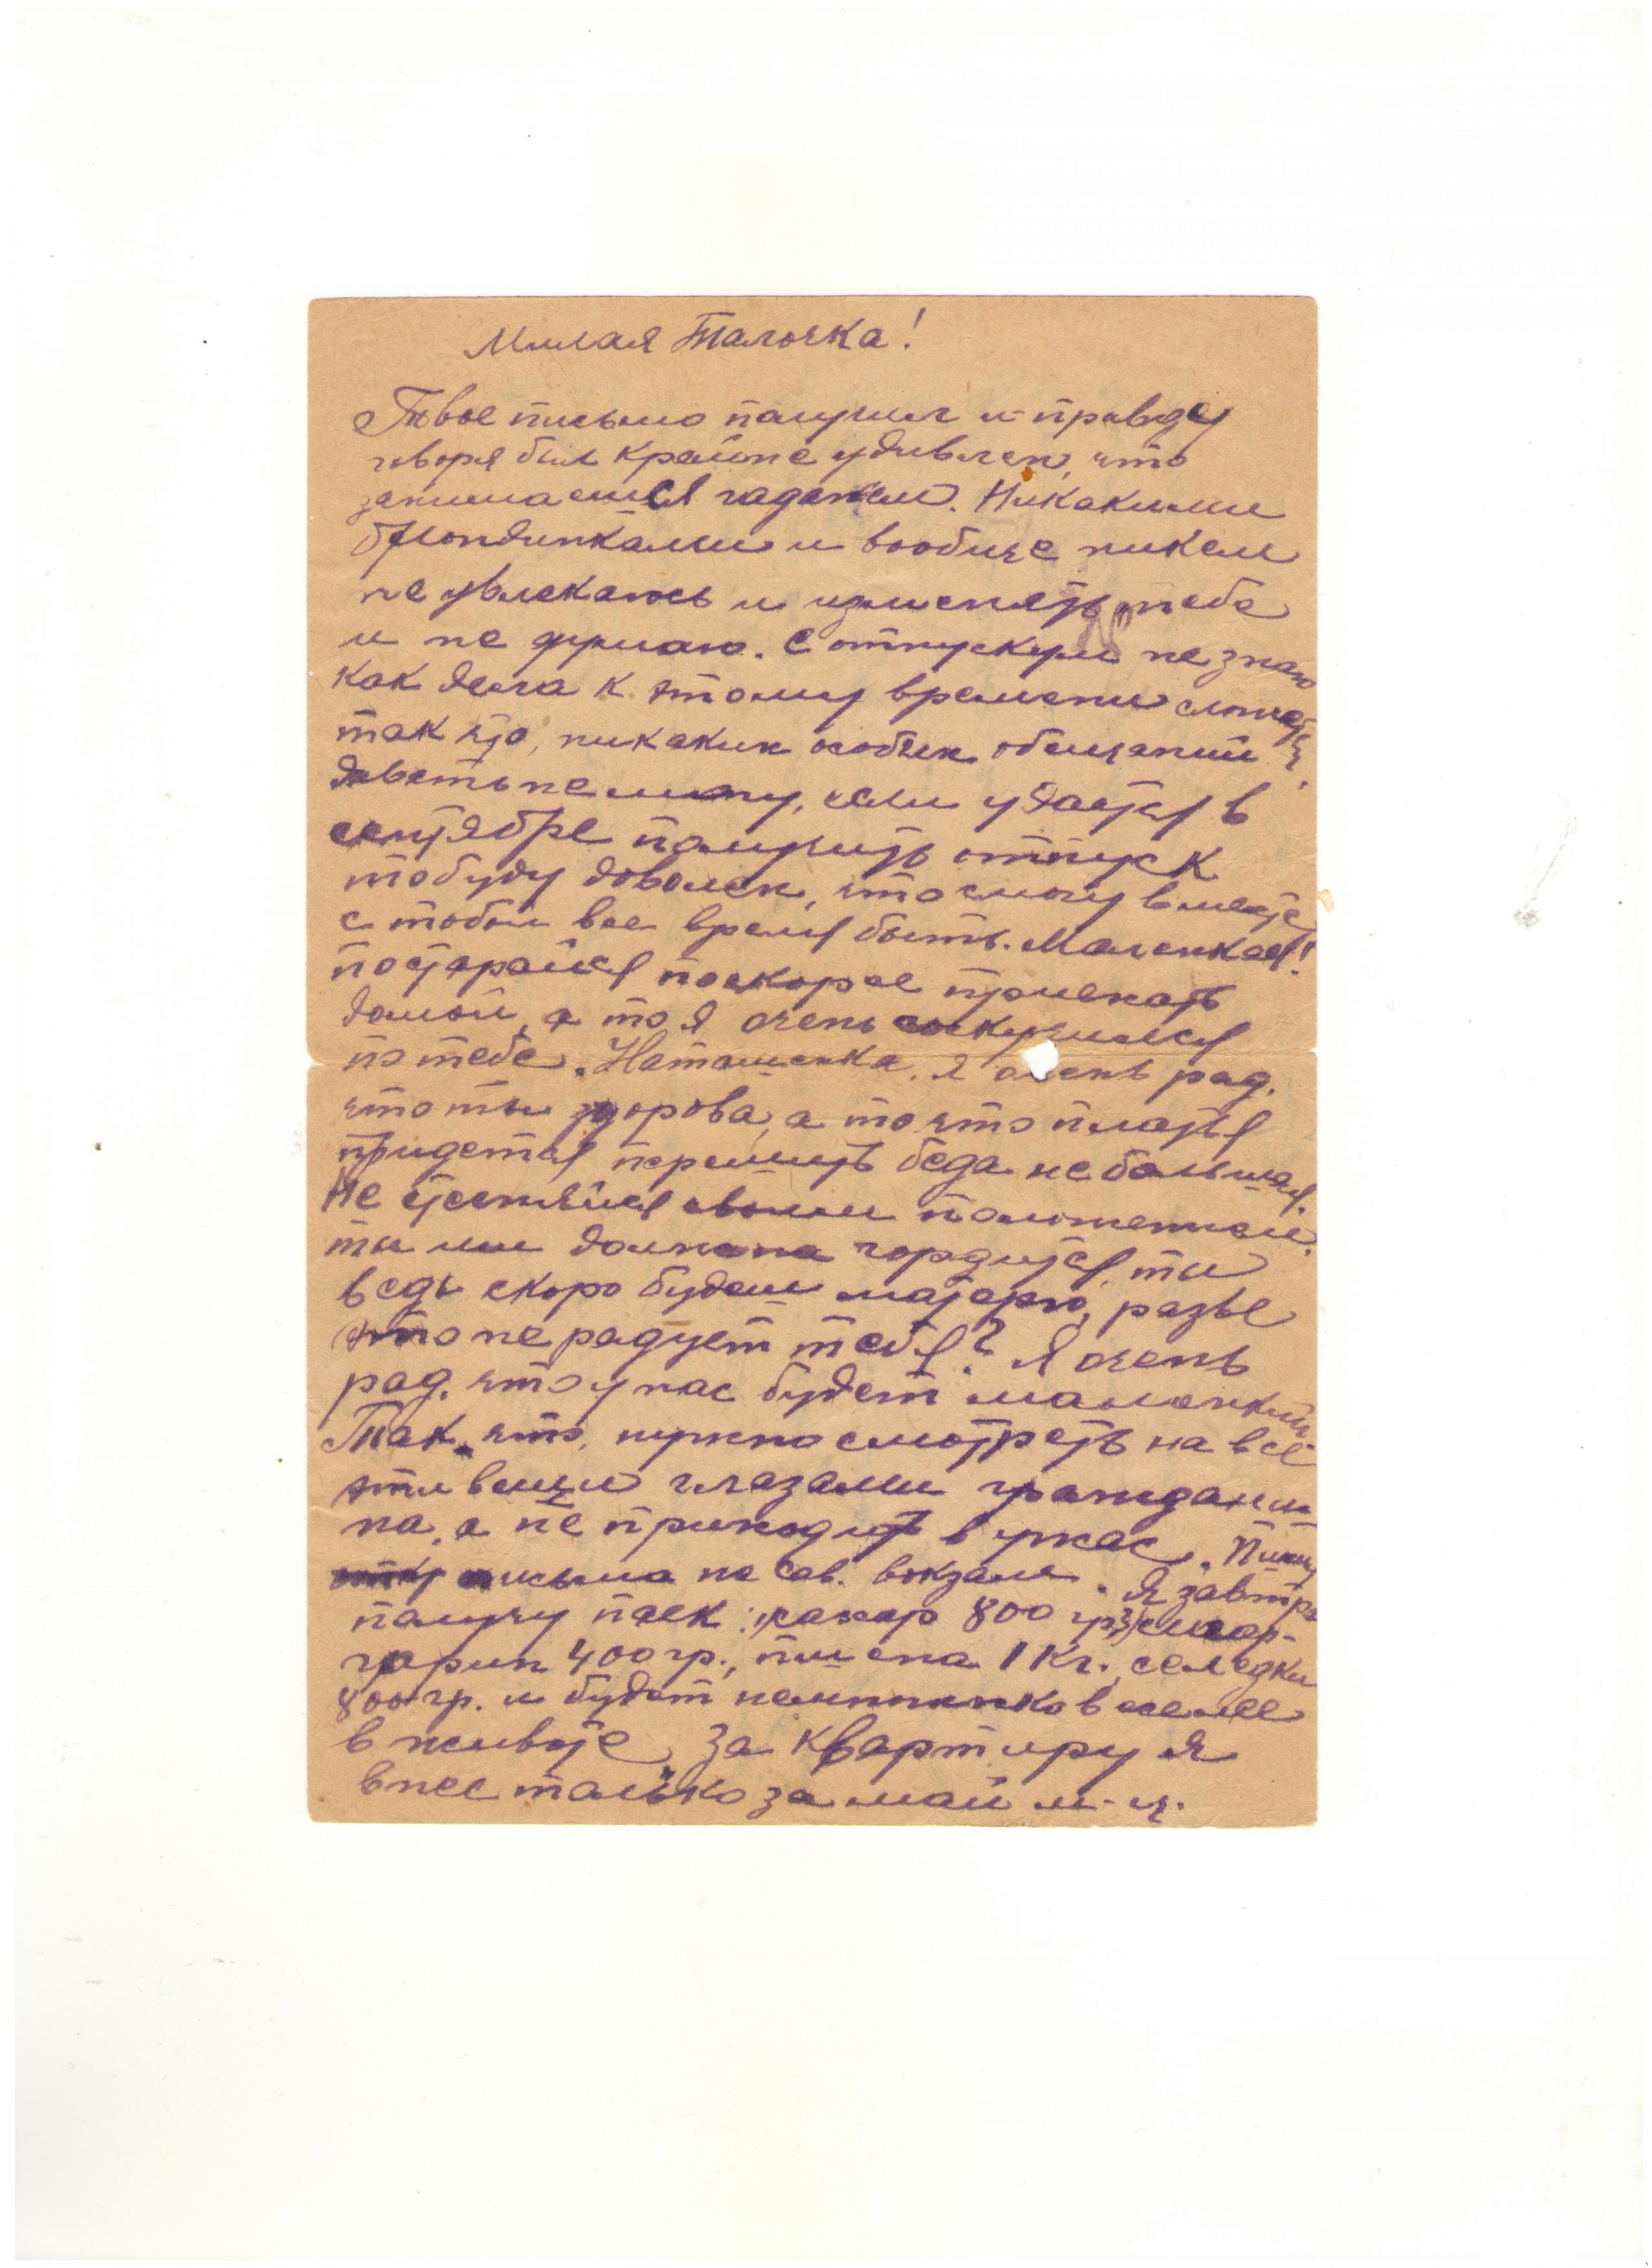 Милая Талочка!
Твое письмо получил и правду
говоря был крайне удивлен, что
занимаешся гаданием. Никакими
блондинками и вообще никем
не увлекаюсь и изменять тебе
и не думаю. С отпуском не знаю
как дела к этому времени сложатся
так что, никаких особых обещаний
давать не могу, если удастся в
сентябре получить отпуск
то буду доволен, что смогу вместе
с тобой все время быть. Маленкая!
постарайся поскорее приехать
домой, а то я очень соскучился
по тебе. Наташенька, я очень рад,
что ты здорова, а то что платья
придется перешить беда не большая.
Не стесняйся своим положением,
ты им должна гордится, ты
ведь скоро будеш матерью, разве
это не радует тебя? Я очень
рад, что у нас будет маленький
Так что, нужно смотреть на все
эти вещи глазами граждани
на, а не приходить в ужас. Пишу
письмо на Сав. вокзале. Я завтра
получу паек: сахар 800 гр, мар-
гарин 400 гр., пшена 1 Кг., селедки
800 гр. и будет немножко веселее
в животе. За квартиру я
внес только за май м-ц.